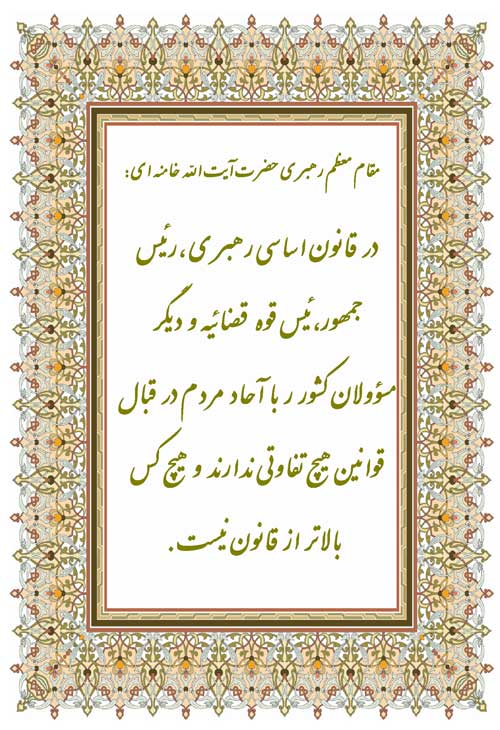 مقام معظم رهبری حضرت آیت الله خامنه ای:
در قانون اساسی رهبری، رئیس
جمهور، ئیس قوه قضائیه و دیگر
مسؤولان کشور ر با آحاد مردم در قبال
قوانین هیچ تفاوتی ندارند و هیچ کس
بالاتر از قانون نیست.